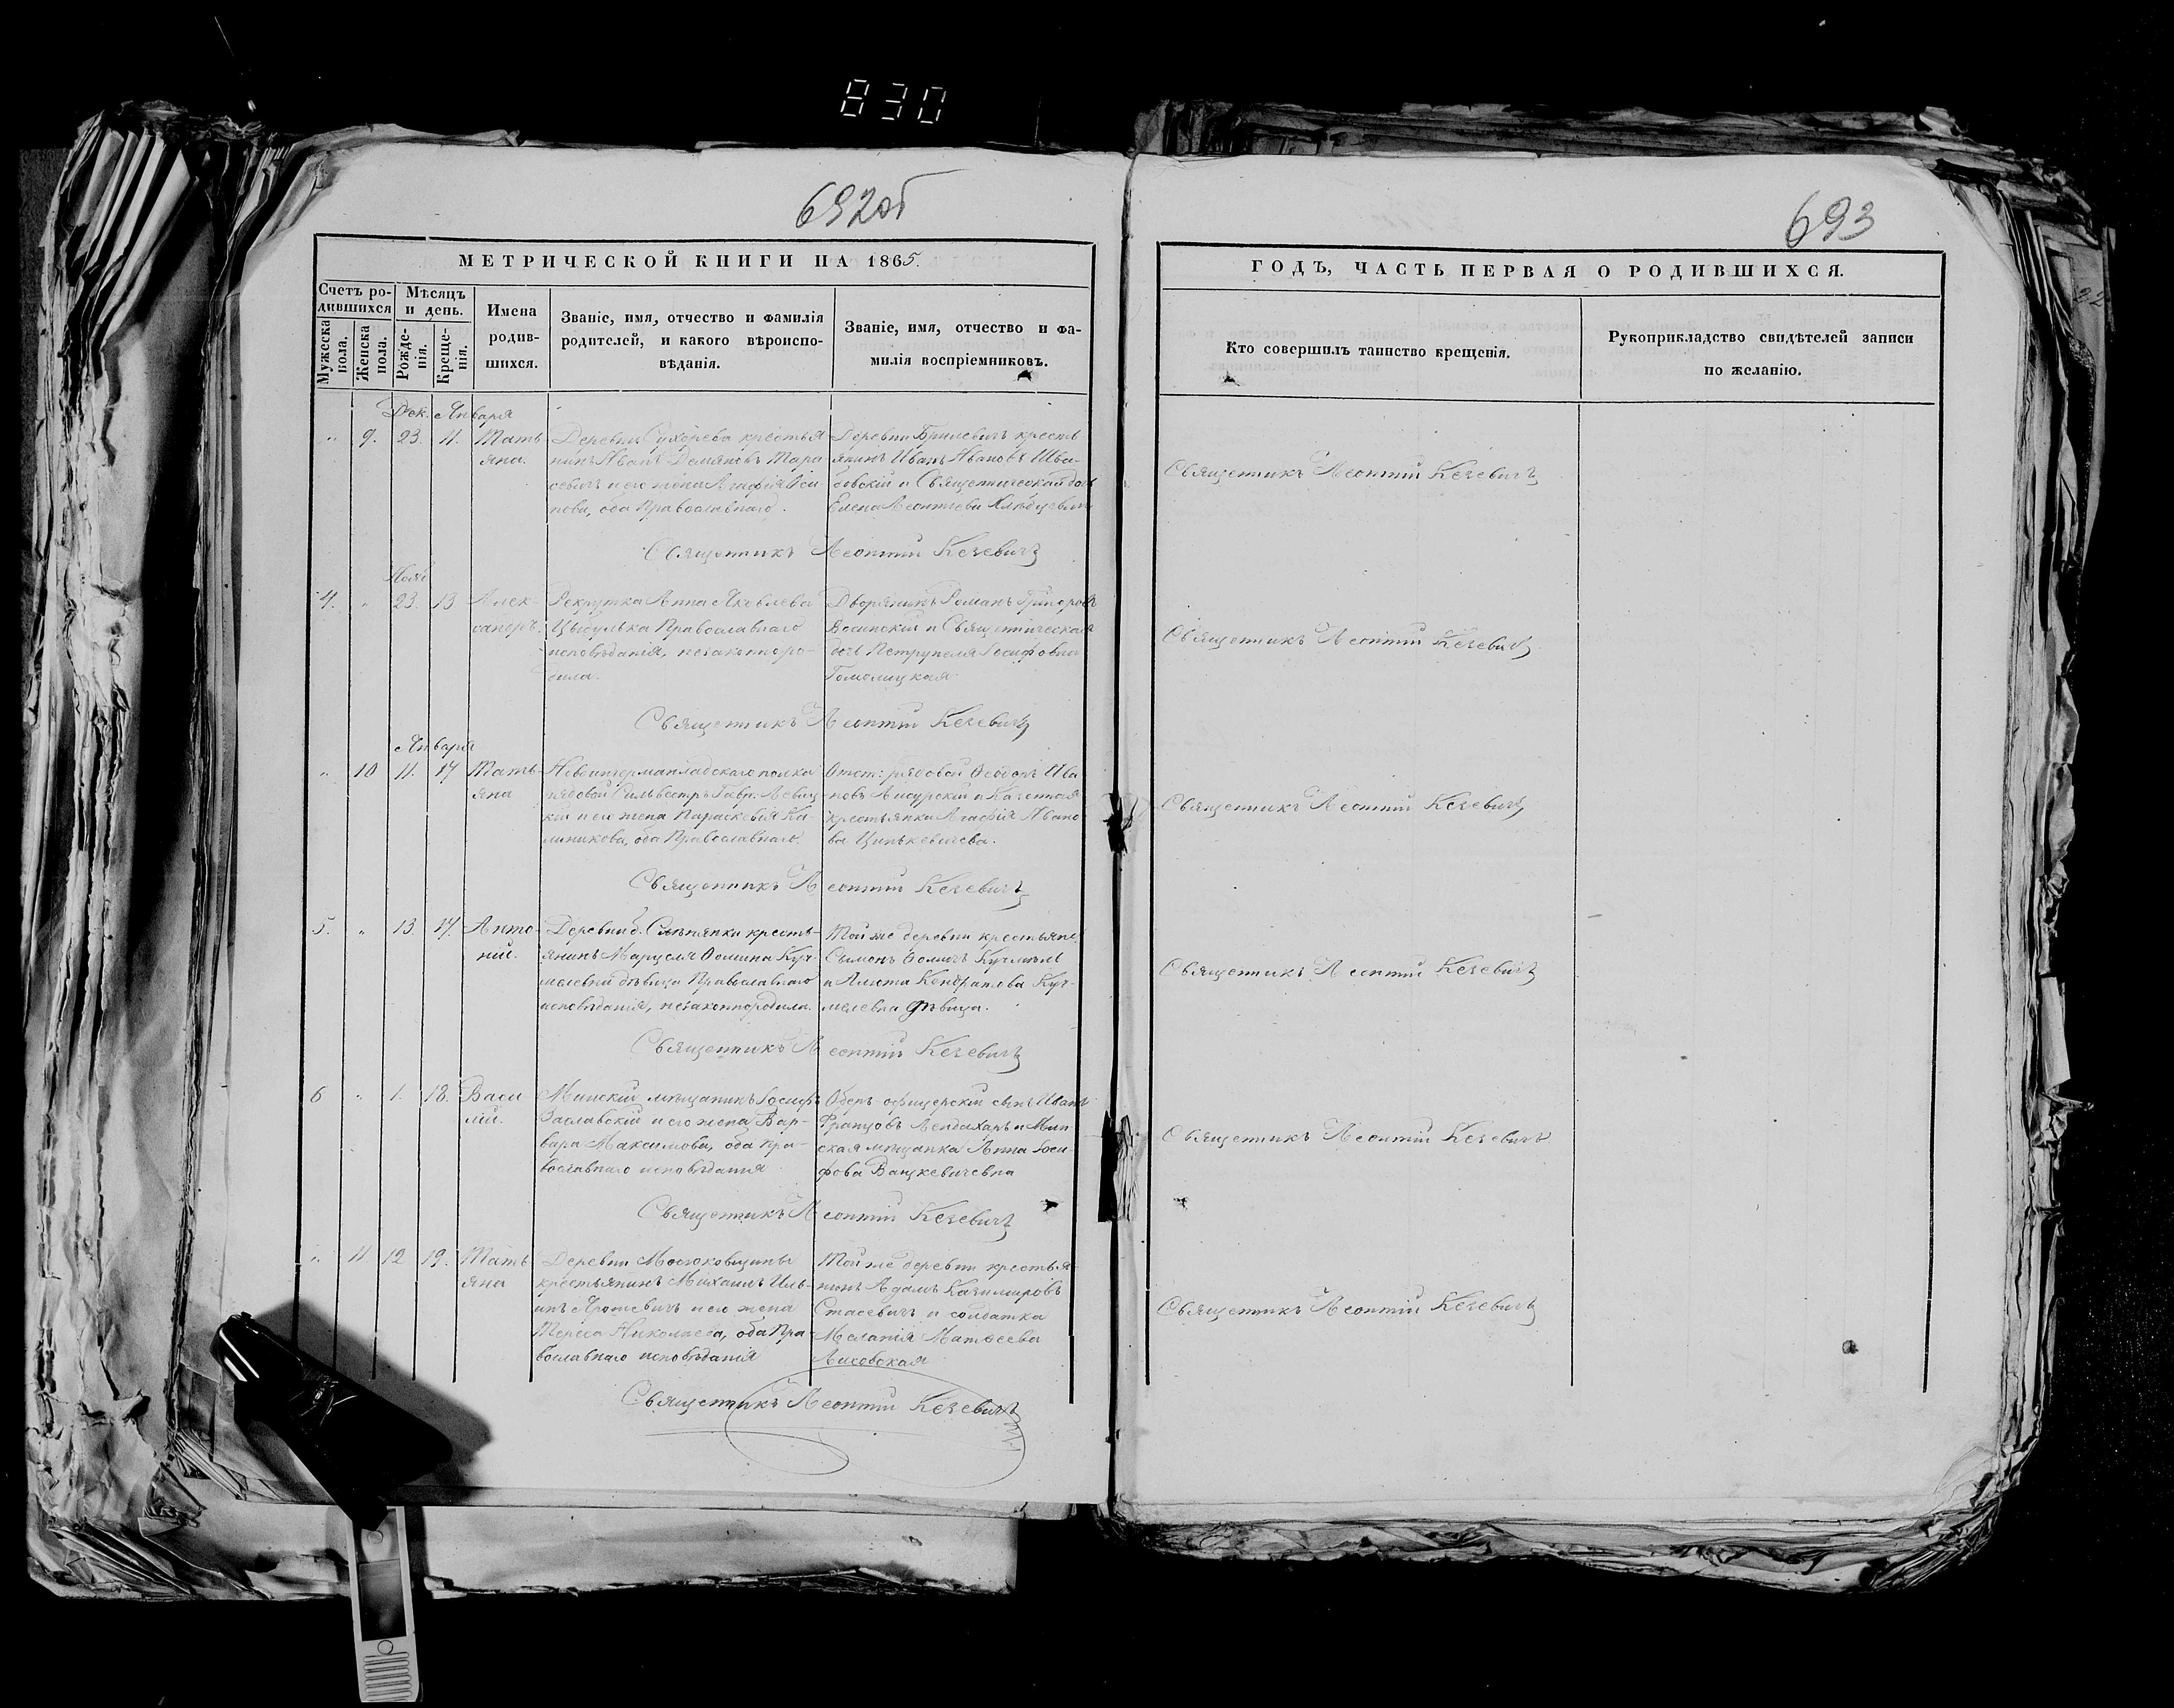 830
692об
693
МЕТРИЧЕСКОЙ КНИГИ НА 1865.
Счетъ ро-
дившихся
Мужеска
пола.
Женска
пола.
Мѣсяцъ
и день.
Рожде-
нія.
Креще-
нія.
Имена
родив-
шихся.
Званіе, имя, отчество и фамилія
родителей, и какого вѣроиспо-
вѣданія.
Званіе, имя, отчество и фа-
милія воспріемниковъ.
ГОДЪ, ЧАСТЬ ПЕРВАЯ О РОДИВШИХСЯ.
Кто совершилъ таинство крещенія.
Рукоприкладство свидѣтелей записи
по желанію.
Дек. Января
" 9. 23. 11. Тать-
яна.
Деревни Сухорева крестья
нинъ Иванъ Демяновъ Тара
севичъ и его жена Агафія Оси
пова, оба Православнаго.
Деревни Брилевичъ кресть
янинъ Иванъ Ивановъ
и Священническая дочь
Елена Леонтіева
Священникъ Леонтій Кезевичъ
Священникъ Леонтій Кезевичъ
Нояб
4. " 23. 13 Алек-
сандръ.
Рекрутка Анна Яковлева
Цыбулька Православнаго
исповѣданія, незаконноро-
дила.
Дворянинъ Романъ Григоровъ
и Священническая
дочь Петрунеля Іосифовна
Гомолицкая
Священникъ Леонтій Кезевичъ
Священникъ Леонтій Кезевичъ
Января
" 10 11. 17 Тать-
яна
Невоингерманладскаго полка
рядовой Сильвестръ Гавр. Левиц
кій и его жена Параскевія Ка-
линикова, оба Православнаго.
Отст: рядовой Ива
новъ и Казенная
крестьянка Агафія Ивано
ва Цинкевичева.
Священникъ Леонтій Кезевичъ
Священникъ Леонтій Кезевичъ
5. " 13 17. Анто-
ній.
Деревни б. Слѣпянки кресть-
янинъ Марцеля Ѳомина Куч-
мелевна дѣвица Православнаго
исповѣданія, незаконнородила.
Той же деревни крестьяне
Сымонъ Ѳомичъ Кучмель
и Кондратова Куч-
мелевна дѣвица.
Священникъ Леонтій Кезевичъ
Священникъ Леонтій Кезевичъ
6 " 1. 18. Васи
лій.
Минскій мѣщанинъ Іосифъ
Заславскій и его жена Вар-
вара Максимова, оба Пра-
вославнаго исповѣданія
Оберъ-офицерскій сынъ Иванъ
Францовъ и Мин-
ская мѣщанка Анна Іоси-
фова Вацкевичевна
Священникъ Леонтій Кезевичъ
Священникъ Леонтій Кезевичъ
" 11. 12 19. Тать
яна
Деревни
крестьянинъ Михаилъ Иль-
инъ и его жена
Тереса Николаева, оба Пра-
вославнаго исповѣданія
Той же деревни крестья-
нинъ Адамъ Казимировъ
Стасевичъ и солдатка
Меланія Матѳеева
Лисовская
Священникъ Леонтій Кезевичъ
Священникъ Леонтій Кезевичъ